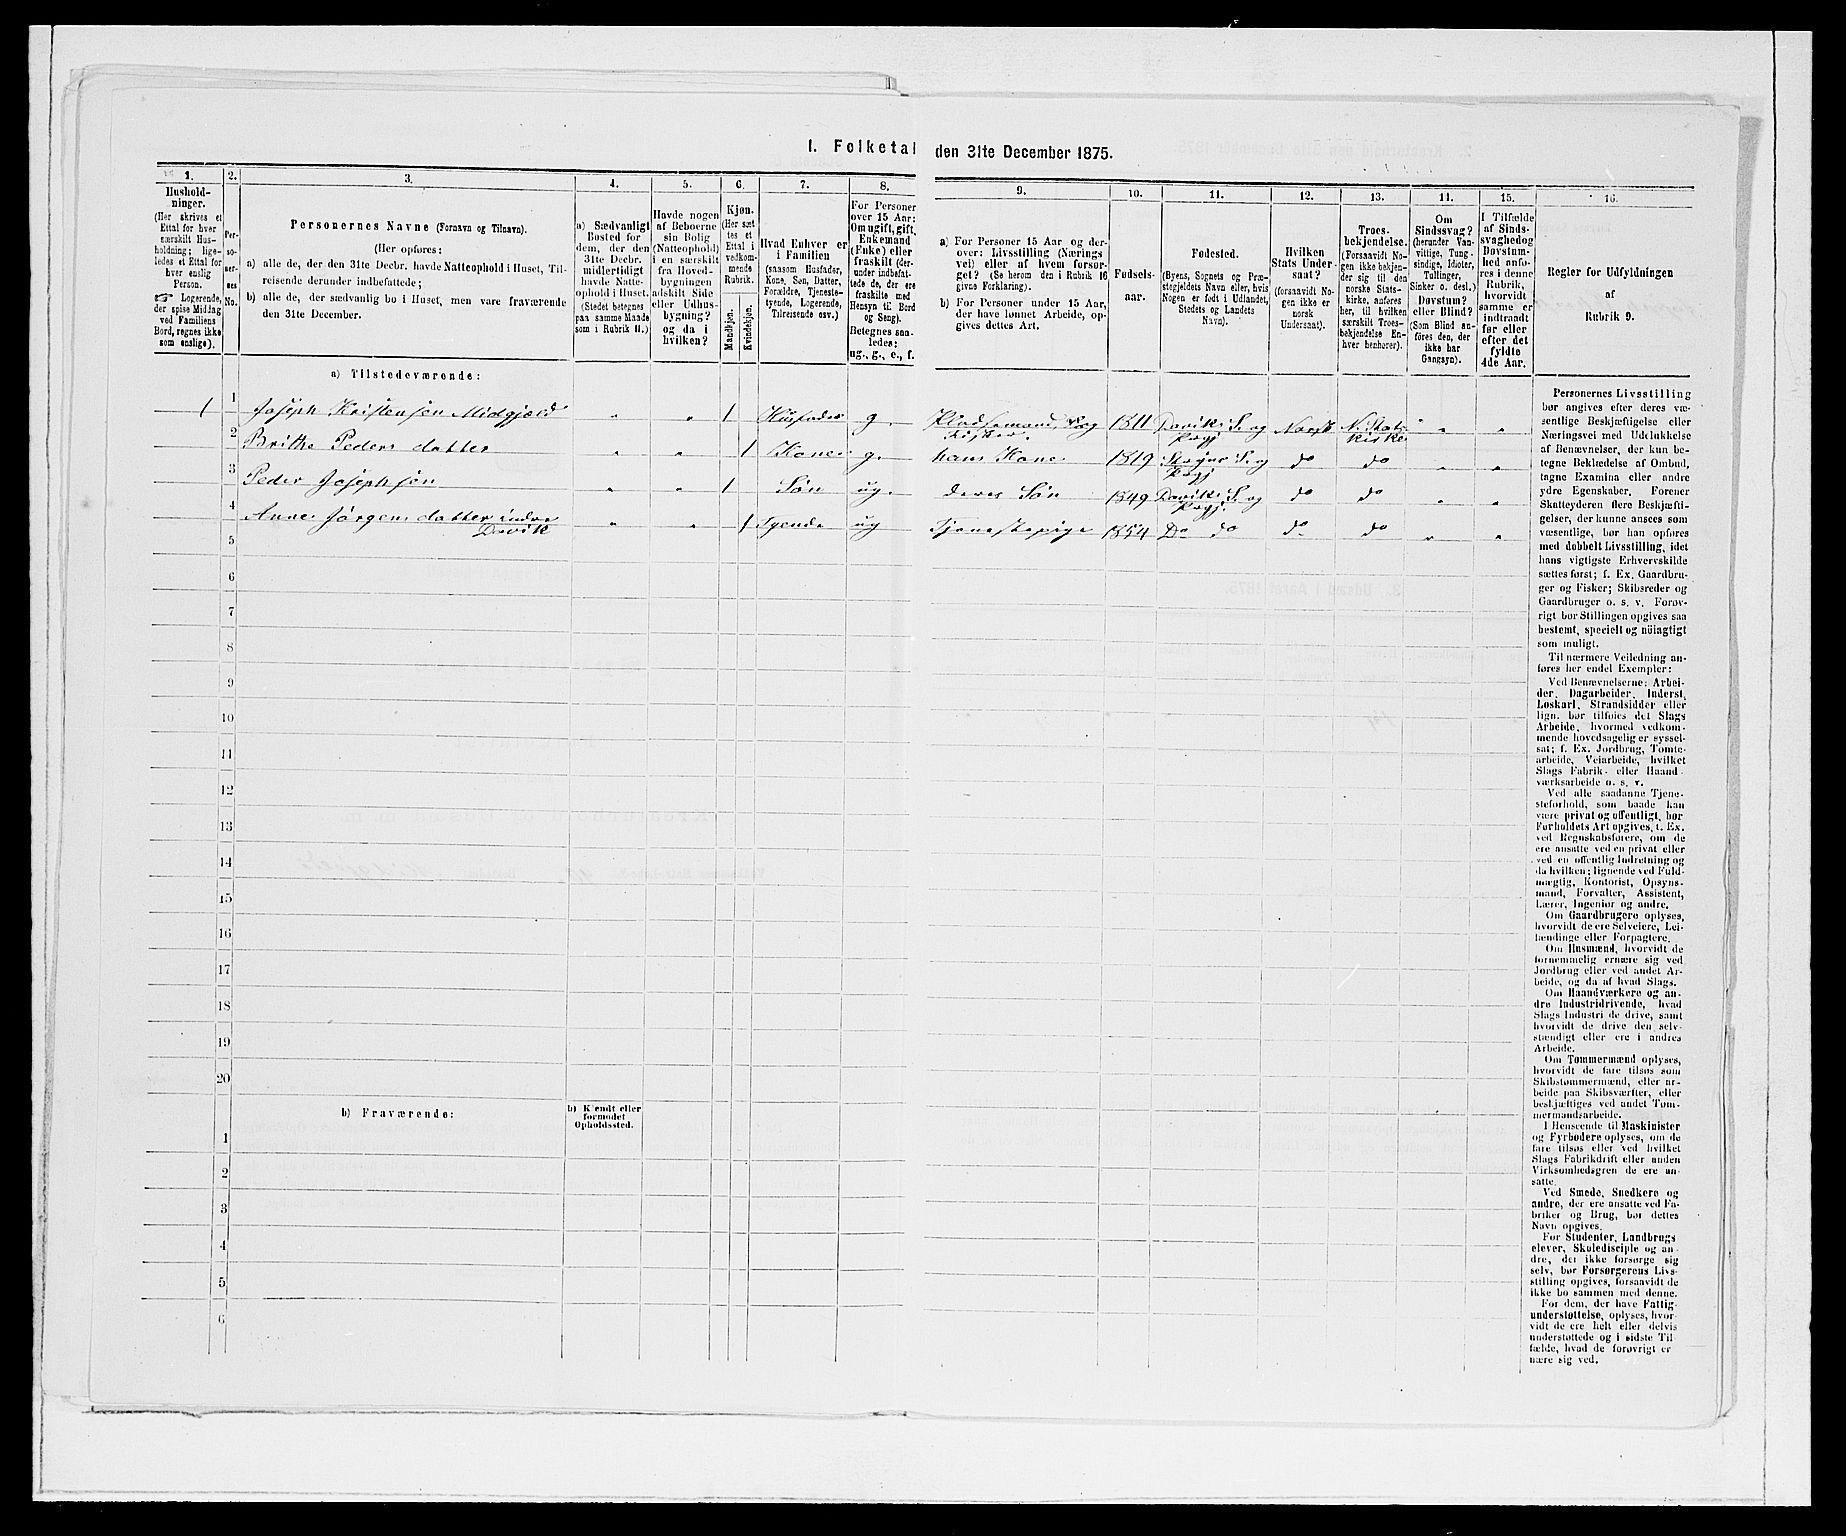 I. Folketal den 31te December 1875.
1.
Hushold-
ninger.
(Her skrives et
Ettal for hver
særskilt Hus-
holdning; lige-
ledes et Ettal for
hver enslig
Person.
☞ Logerende,
der spise Middag
ved Familiens
Bord, regnes ikke
som enslige).
2.
Per-
so-
ner-
nes
No.
3.
Personernes Navne (Fornavn og Tilnavn).
(Her opføres:
a) alle de, der den 31te Decbr. havde Natteophold i Huset, Til-
reisende derunder indbefattede;
b) alle de, der sædvanlig bo i Huset, men vare fraværende
den 31te December.
4.
a) Sædvanligt
Bosted for
dem, der den
31te Decbr.
midlertidigt
havde Natte-
ophold i Huset.
(Stedet betegnes
paa samme Maade
som i Rubrik 11.)
5.
Havde nogen
af Beboerne
sin Bolig
(Natteophold)
i en særskilt
fra Hoved-
bygningen
adskilt Side
eller Udhus-
bygning?
og da i
hvilken?
6.
Kjøn.
(Her sæt
tes et
Ettal i
vedkom-
mende
Rubrik.
Mandkjøn.
Kvindekjøn.
7.
Hvad Enhver er
i Familien
(saasom Husfader,
Kone, Søn, Datter,
Forældre, Tjeneste-
tyende, Logerende,
Tilreisende osv.)
8.
For Personer
over 15 Aar:
Om ugift, gift,
Enkemand
(Enke) eller
fraskilt (der-
under indbefat-
tede de, der ere
fraskilte med
Hensyn til Bord
og Seng).
Betegnes saa-
ledes:
ug., g., e., f.
9.
a) For Personer 15 Aar og der-
over: Livsstilling (Nærings
vei) eller af hvem forsør-
get? (Se herom den i Rubrik 16
givne Forklaring).
b) For Personer under 15 Aar,
der have lønnet Arbeide, op-
gives dettes Art.
10.
Fødsels-
aar.
11.
Fødested.
(Byens, Sognets og Præ-
stegjeldets Navn eller, hvis
Nogen er født i Udlandet,
Stedets og Landets
Navn).
12.
Hvilken
Stats Under
saat?
(forsaavidt No-
gen ikke er
norsk
Undersaat).
13.
Troes-
bekjendelse.
(Forsaavidt No-
gen ikke bekjen-
der sig til den
norske Stats-
kirke, anføres
her, til hvilken
særskilt Troes-
bekjendelse En-
hver henhører).
14.
Om
Sindssvag?
(herunder Van-
vittige, Tung-
sindige, Idioter,
Tullinger,
Sinker o. desl.)
Døvstum?
eller Blind?
(Som Blind an-
føres den, der
ikke har
Gangsyn).
15.
I Tilfælde
af Sinds-
svaghed og
Døvstum-
hed anfø-
res i denne
Rubrik,
hvorvidt
samme er
indtraadt
før eller
efter det
fyldte
4de Aar.
16.
Regler for Udfyldningen
af
Rubrik 9.
a) Tilstedeværende:
1 1 Joseph Kristensen Midgjæld " " 1 Husfader g. Pladsemand og Fisker 1811 Daviks S. og Prgj Norsk N. Statskirke " "
2 Brithe Peders datter " " 1 Kone g. hans Kone 1819 S. og Prgj do do " "
3 Peder Josephsen " " 1 Søn ug. deres Søn 1849 Daviks S. og Prgj. do do " "
4 Anne Jørgens datter indre Davik " " 1 Tyende ug Tjenestepige 1854 Do do do do " "
5
6
7
8
9
10
11
12
13
14
15
16
17
18
19
20
b) Fraværende:
b) Kjendt eller
formodet
Opholdssted.
1
2
3
4
5
6
Personernes Livsstilling
bør angives efter deres væ-
sentlige Beskjæftigelse eller
Næringsvei med Udelukkelse
af Benævnelser, der kun be-
tegne Beklædelse af Ombud,
tagne Examina eller andre
ydre Egenskaber. Forener
Skatteyderen flere Beskjæfti-
gelser, der kunne ansees som
væsentlige, bør han opføres
med dobbelt Livsstilling, idet
hans vigtigste Erhvervskilde
sættes først; f. Ex. Gaardbru-
ger og Fisker; Skibsreder og
Gaardbruger o. s. v. Forøv-
rigt bør Stillingen opgives saa
bestemt, specielt og nøiagtigt
som muligt.
Til nærmere Veiledning an-
føres her endel Exempler:
Ved Benævnelserne: Arbei-
der, Dagarbeider, Inderst,
Løskarl, Strandsidder eller
lign. bør tilføies det Slags
Arbeide, hvormed vedkom-
mende hovedsagelig er syssel-
sat; f. Ex. Jordbrug, Tomte-
arbeide, Veiarbeide, hvilket
Slags Fabrik- eller Haand
værksarbeide o. s. v.
Ved alle saadanne Tjene-
steforhold, som baade kan
være privat og offentligt, bør
Forholdets Art opgives, f. Ex.
ved Regnskabsførere, om de
ere ansatte ved en privat eller
ved en offentlig Indretning og
da hvilken; lignende ved Fuld-
mægtig, Kontorist, Opsyns-
mand, Forvalter, Assistent,
Lærer, Ingeniør og andre.
Om Gaardbrugere oplyses,
hvorvidt de ere Selveiere, Lei-
lændinge eller Forpagtere.
Om Husmænd, hvorvidt de
fornemmelig ernære sig ved
Jordbrug eller ved andet Ar-
beide, og da af hvad Slags.
Om Haandværkere og an-
dre Industridrivende, hvad
Slags Industri de drive, samt
hvorvidt de drive den selv-
stændigt eller ere i andres
Arbeide.
Om Tømmermænd oplyses,
hvorvidt de fare tilsøs som
Skibstømmermænd, eller ar-
beide paa Skibsværfter, eller
beskjæftiges ved andet Tøm-
mermandsarbeide.
I Henseende til Maskinister
og Fyrbødere oplyses, om de
fare tilsøs eller ved hvilket
Slags Fabrikdrift eller anden
Virksomhedsgren de ere an-
satte.
Ved Smede, Snedkere og
andre, der ere ansatte ved Fa-
briker og Brug, bør dettes
Navn opgives.
For Studenter, Landbrugs
elever, Skoledisciple og an-
dre, der ikke forsørge sig
selv, bør Forsørgerens Livs-
stilling opgives, forsaavidt de
ikke bo sammen med denne.
For dem, der have Fattig-
understøttelse, oplyses, hvor-
vidt de ere helt eller delvis
understøttede og i sidste Til
fælde, hvad de forøvrigt er
nære sig ved.